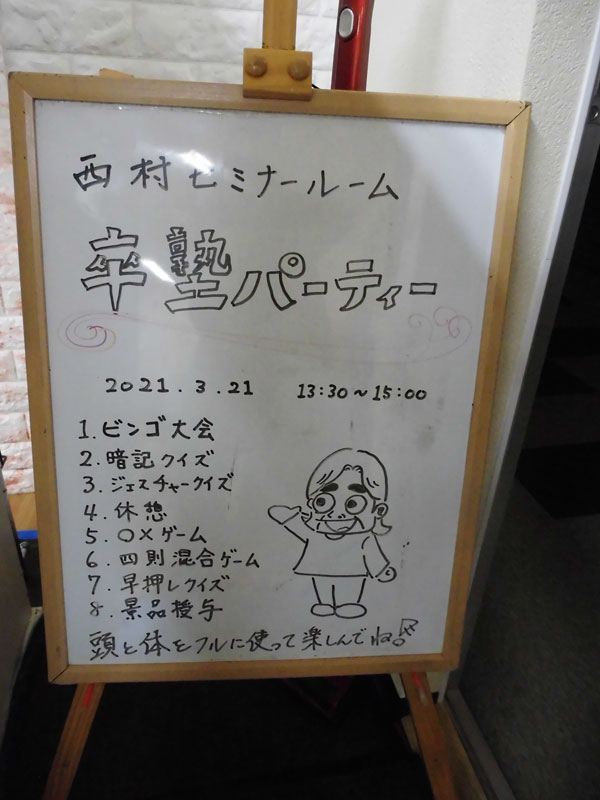 西村セミナールーム
卒塾パーティー
2021.3.21 13:30～15:00
1.ビンゴ大会
2.暗記クイズ
3.ジェスチャークイズ
4.休憩
5.○×ゲーム
6.四則混合ゲーム
7.早押しクイズ
8.景品授与
頭と体をフルに使って楽しんでね